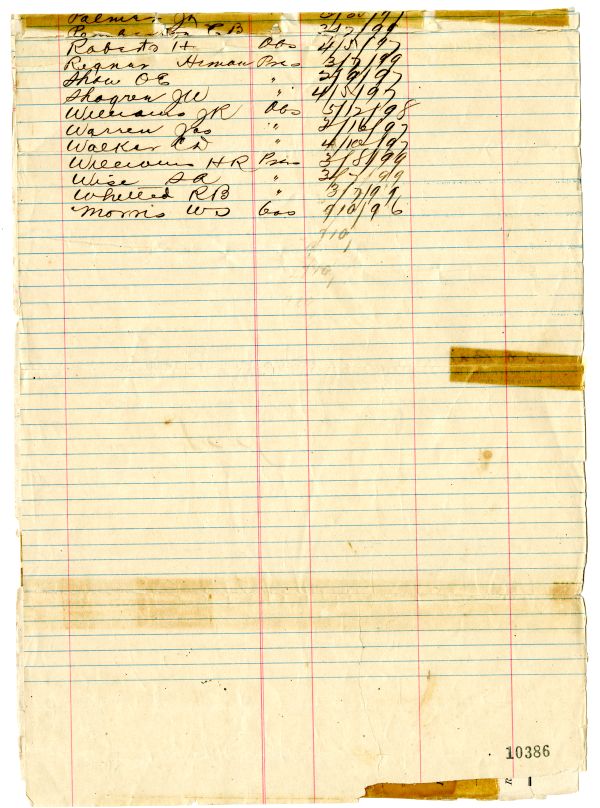 Palmer JA
3/7/99
Roberts H Obs 4/5/97
Regnar Heman Pres 3/7/99
Shaw OE " 2/9/97
Shogren JW " 4/5/97
Williams JR Obs 5/12/98
Warren Jas " 2/16/97
Walker CD " 4/10/97
Williams HR Pres 3/8/99
Wise SA " 3/7/99
Whelled RB " 3/7/99
Morris WS Cos 9/10/96
10386
R